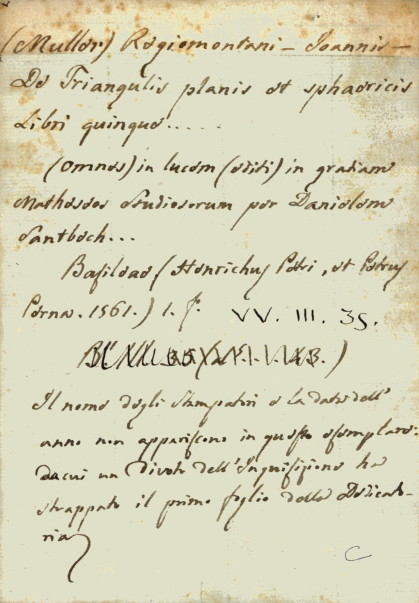 (Muller) Regiomontani - Joannis -
De Triangulis planis et sphaericis
Libri quinque.....
(omnes) in lucem (editi) in gratiam
Matheseos studiosorum per Danielem
Santbech...
Basileae (Henrichus Petri, et Petrus
Perna. 1561.) 1. f.
VV. III. 35.
Il nome degli Stampatori e la data dell'
anno non appariscono in questo esemplare.
da cui un divoto dell'Inquisizione ha
strappato il primo foglio della Dedicato-
ria)
C